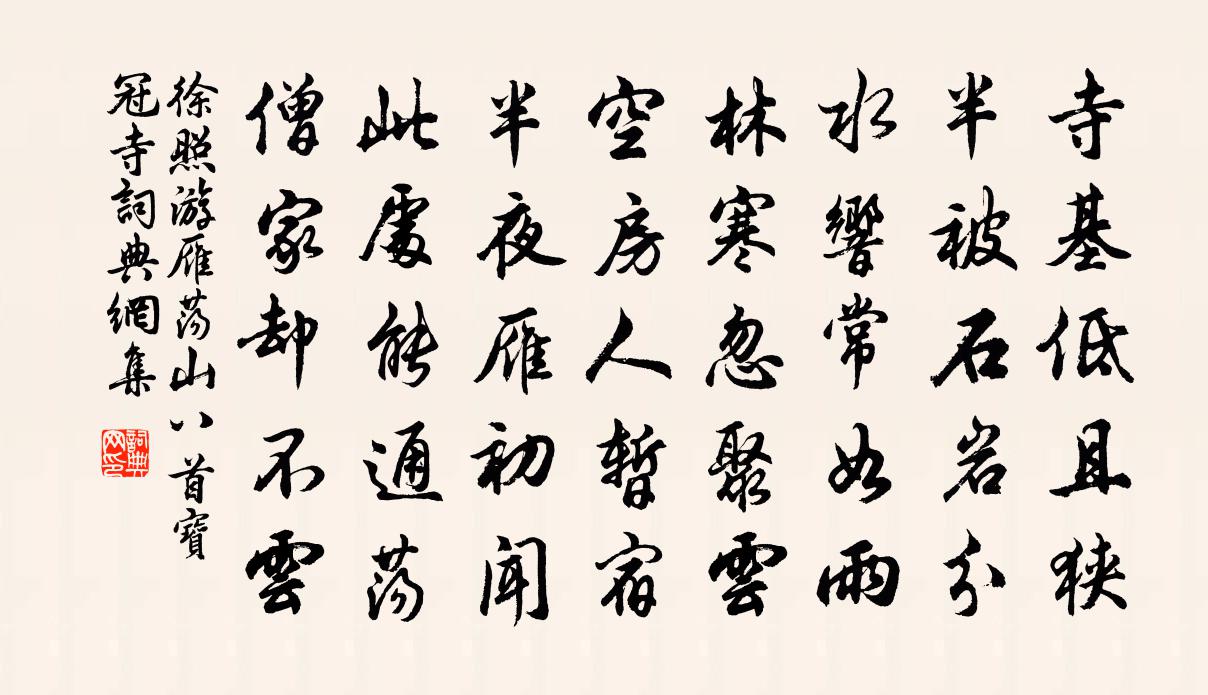 寺基低且狹
半被石岩分
水響常如雨
林寒忽聚雲
空房人暫宿
半夜雁初聞
此處能通蕩
僧家却不雲
徐照游雁蕩山八首寶
冠寺詞典網集
詞典
网印